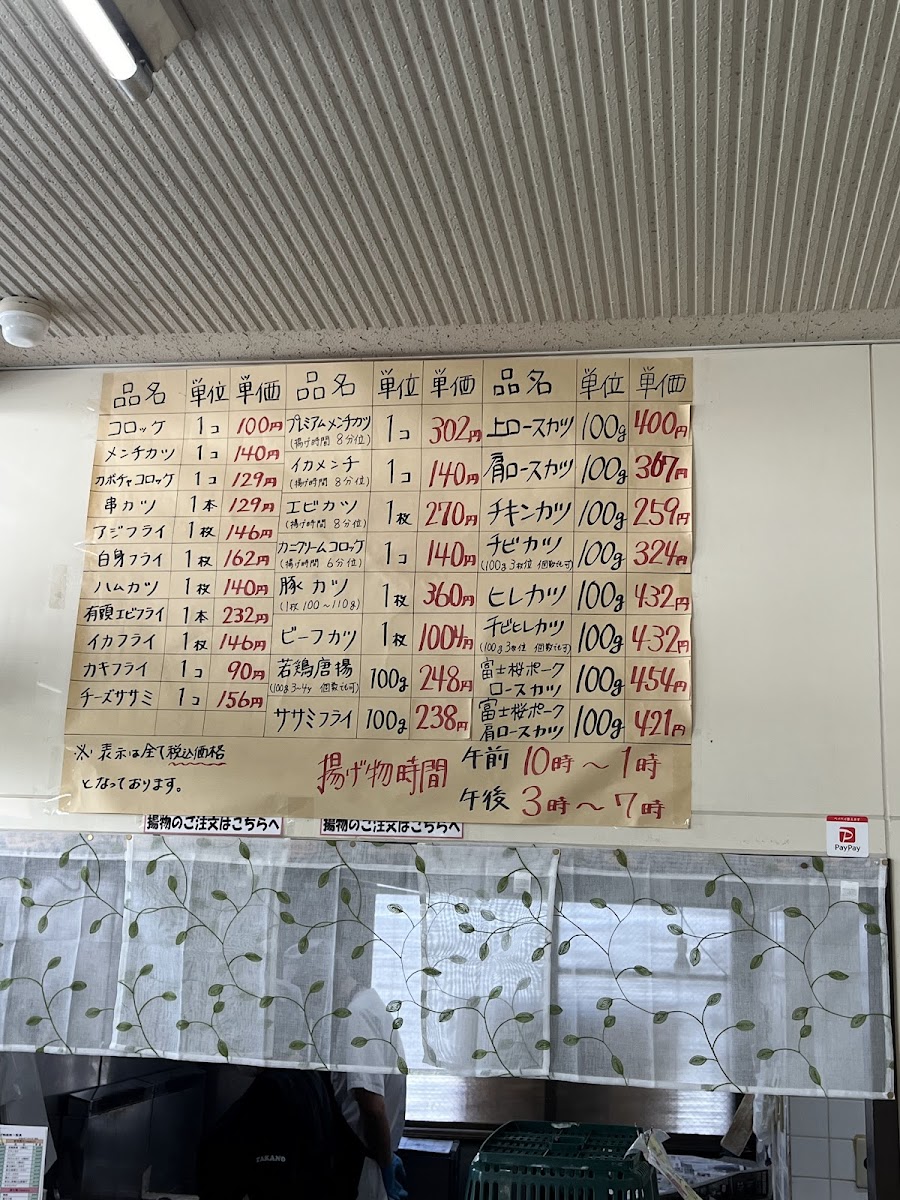 品名 単位 単価 品名 単位 単価 品名 単位 単価
コロッケ 1コ 100円
メンチカツ 1コ 140円
カボチャコロッケ 1コ 129円
串カツ 1本 129円
アジフライ 1枚 146円
白身フライ 1枚 162円
ハムカツ 1枚 140円
有頭エビフライ 1本 232円
イカフライ 1枚 146円
カキフライ 1コ 90円
チーズササミ 1コ 156円
プレミアムメンチカツ 1コ 302円
(揚げ時間 8分位)
イカメンチ 1コ 140円
(揚げ時間 8分位)
エビカツ 1枚 270円
(揚げ時間 8分位)
カニクリームコロッケ 1コ 140円
(揚げ時間 6分位)
豚カツ 1枚 360円
(1枚 100~110g)
ビーフカツ 1枚 1004円
若鶏唐揚 100g 248円
(100g 3~4ヶ 個数でも可)
ササミフライ 100g 238円
上ロースカツ 100g 400円
肩ロースカツ 100g 367円
チキンカツ 100g 259円
チビカツ 100g 324円
(100g 3枚位 個数でも可)
ヒレカツ 100g 432円
チビヒレカツ 100g 432円
(100g 3枚位 個数でも可)
富士桜ポーク
ロースカツ 100g 454円
富士桜ポーク
肩ロースカツ 100g 421円
※ 表示は全て税込価格
となっております。
揚げ物時間 午前 10時~1時
午後 3時~7時
揚物のご注文はこちらへ
揚物のご注文はこちらへ
PayPay
TAKANO